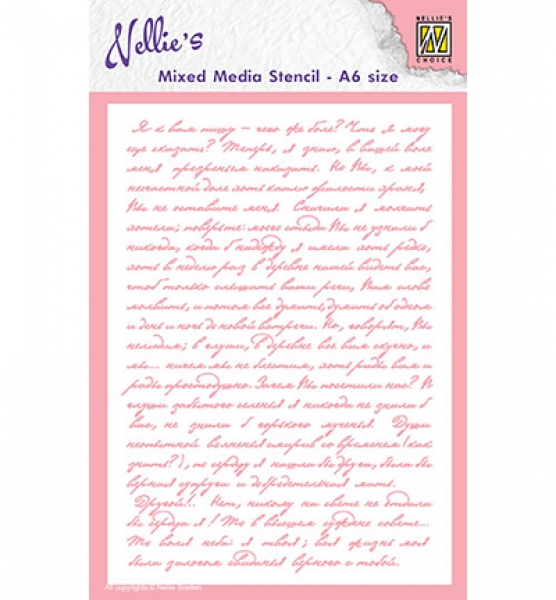 Nellie's
NELLIE'S
N
CHOICE
Mixed Media Stencil - A6 size
Я к вам пишу – чего же боле? Что я могу
еще сказать? Теперь, я знаю, в вашей воле
меня презреньем наказать. Но Вы, к моей
несчастной доле хоть каплю жалости храня,
Вы не оставите меня. Сначала я молчать
хотела; поверьте: моего стыда Вы не узнали б
никогда, когда б надежду я имела хоть редко,
хоть в неделю раз в деревне нашей видеть вас,
чтоб только слышать ваши речи, Вам слово
молвить, и потом все думать, думать об одном
и день и ночь до новой встречи. Но, говорят, Вы
нелюдим; в глуши, в деревне все вам скучно, и
мы... ничем мы не блестим, хоть рады вам и
рады простодушно. Зачем Вы посетили нас? В
глуши забытого селенья я никогда не знала б
вас, не знала б горького мученья. Души
неопытной волненья смирив со временем (как
знать?), по сердцу я нашла бы друга, была бы
верная супруга и добродетельная мать.
Другой!.. Нет, никому на свете не отдала
бы сердца я! То в высшем суждено совете...
То воля неба: я твоя; вся жизнь моя
была залогом свиданья верного с тобой.
All copyrights © Nellie Snellen